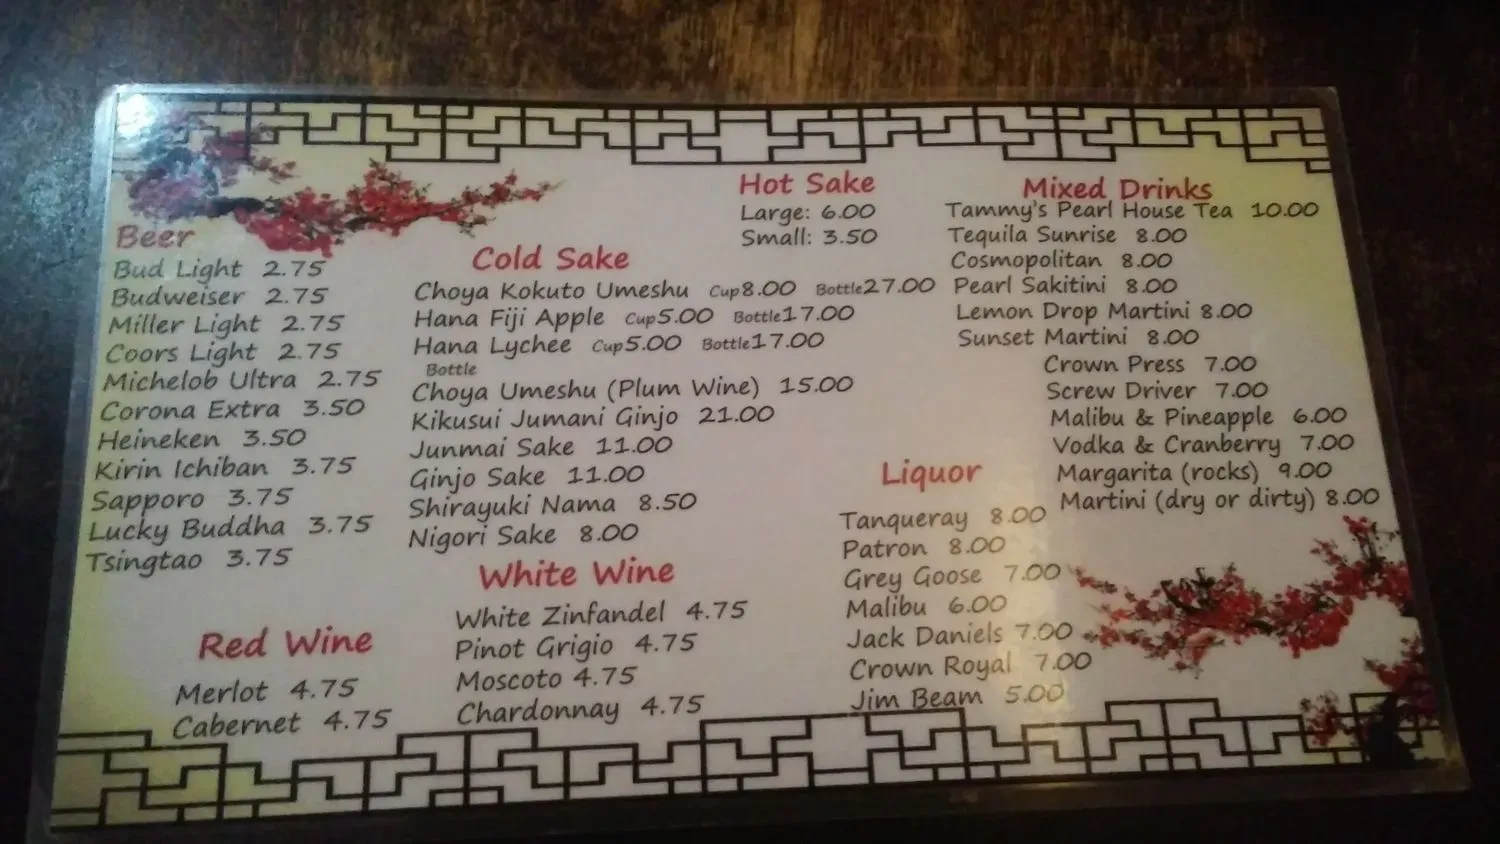 Beer
Bud Light 2.75
Budweiser 2.75
Miller Light 2.75
Coors Light 2.75
Michelob Ultra 2.75
Corona Extra 3.50
Heineken 3.50
Kirin Ichiban 3.75
Sapporo 3.75
Lucky Buddha 3.75
Tsingtao 3.75
Red Wine
Merlot 4.75
Cabernet 4.75
Cold Sake
Choya Kokuto Umeshu Cup8.00 Bottle27.00
Hana Fiji Apple Cup5.00 Bottle17.00
Hana Lychee Cup5.00 Bottle17.00
Bottle
Choya Umeshu (Plum Wine) 15.00
Kikusui Jumani Ginjo 21.00
Junmai Sake 11.00
Ginjo Sake 11.00
Shirayuki Nama 8.50
Nigori Sake 8.00
White Wine
White Zinfandel 4.75
Pinot Grigio 4.75
Moscoto 4.75
Chardonnay 4.75
Hot Sake
Large: 6.00
Small: 3.50
Mixed Drinks
Tammy's Pearl House Tea 10.00
Tequila Sunrise 8.00
Cosmopolitan 8.00
Pearl Sakitini 8.00
Lemon Drop Martini 8.00
Sunset Martini 8.00
Crown Press 7.00
Screw Driver 7.00
Malibu & Pineapple 6.00
Vodka & Cranberry 7.00
Margarita (rocks) 9.00
Martini (dry or dirty) 8.00
Liquor
Tanqueray 8.00
Patron 8.00
Grey Goose 7.00
Malibu 6.00
Jack Daniels 7.00
Crown Royal 7.00
Jim Beam 5.00